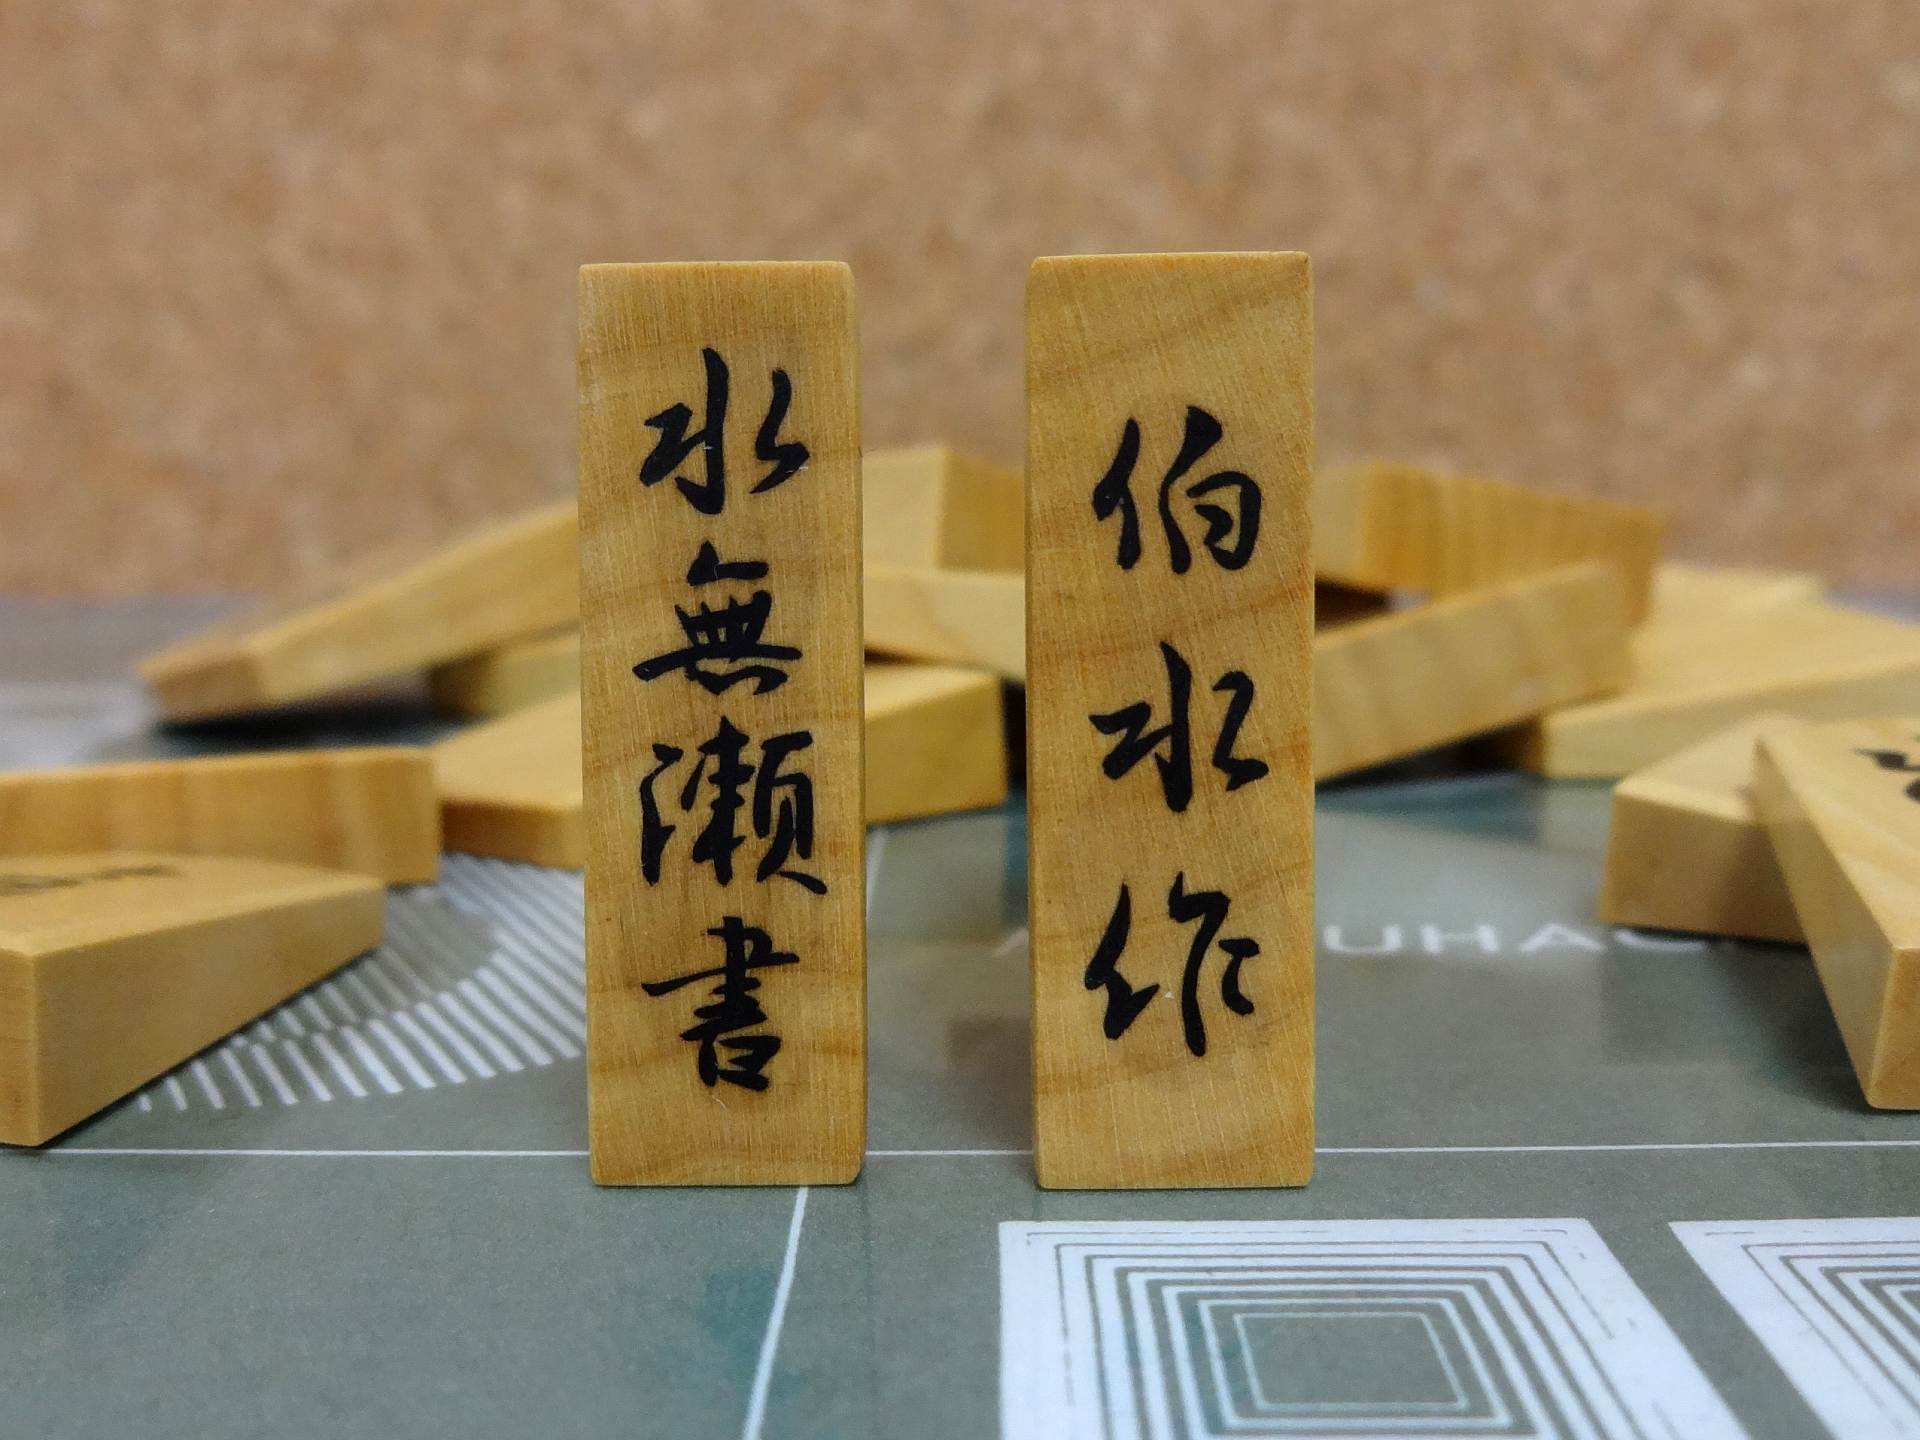 水無瀬書
伯水作